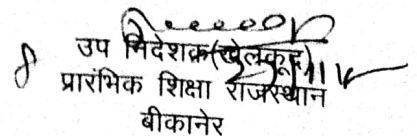 उप निदेशक(खेलकूद)
प्रारंभिक शिक्षा राजस्थान
बीकानेर